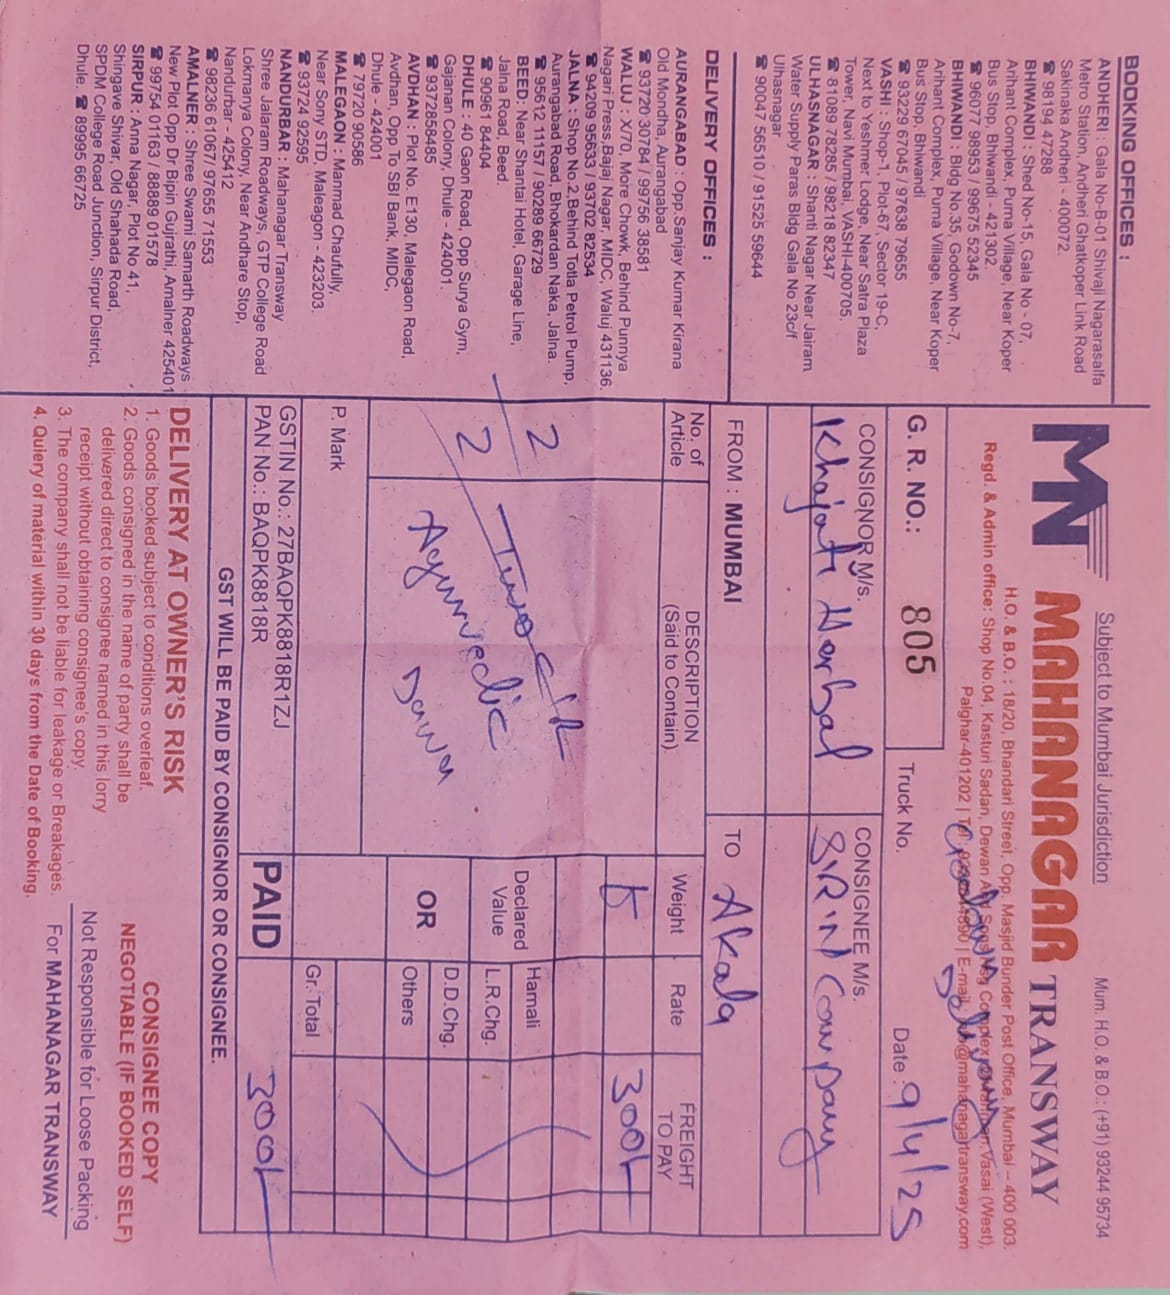 Subject to Mumbai Jurisdiction
Mum. H.O. & B.O.: (+91) 93244 95734
MN MAHANAGAR TRANSWAY
H.O. & B.O. : 18/20, Bhandari Street, Opp. Masjid Bunder Post Office, Mumbai – 400 003.
Regd. & Admin office: Shop No.04, Kasturi Sadan, Dewan Vasai (West),
Palghar-401202 | E-mail: @mahanagartransway.com
Godown Delivery
BOOKING OFFICES :
ANDHERI : Gala No-B-01 Shivaji Nagarasalfa
Metro Station, Andheri Ghatkoper Link Road
Sakinaka Andheri - 400072.
☎ 98194 47288
BHIWANDI : Shed No-15, Gala No - 07,
Arihant Complex, Purna Village, Near Koper
Bus Stop, Bhiwandi - 421302.
☎ 96077 98953 / 99675 52345
BHIWANDI : Bldg No.35, Godown No-7,
Arihant Complex, Purna Village, Near Koper
Bus Stop, Bhiwandi
☎ 93229 67045 / 97638 79655
VASHI : Shop-1, Plot-67, Sector 19-C,
Next to Yeshmer Lodge, Near Satra Plaza
Tower, Navi Mumbai, VASHI-400705.
☎ 81089 78285 / 98218 82347
ULHASNAGAR : Shanti Nagar Near Jairam
Water Supply Paras Bldg Gala No 23c/f
Ulhasnagar
☎ 90047 56510 / 91525 59644
DELIVERY OFFICES :
AURANGABAD : Opp.Sanjay Kumar Kirana
Old Mondha, Aurangabad
☎ 93720 30784 / 99756 38581
WALUJ : X/70, More Chowk, Behind Punnya
Nagari Press,Bajaj Nagar, MIDC, Waluj 431136.
☎ 94209 95633 / 93702 82534
JALNA : Shop No.2,Behind Totla Petrol Pump,
Aurangabad Road, Bhokardan Naka, Jalna.
☎ 95612 11157 / 90289 66729
BEED: Near Shantai Hotel, Garage Line,
Jalna Road, Beed.
☎ 90961 84404
DHULE : 40 Gaon Road, Opp Surya Gym,
Gajanan Colony, Dhule - 424001.
☎ 9372858485
AVDHAN : Plot No. E130, Malegaon Road,
Avdhan, Opp To SBI Bank, MIDC,
Dhule - 424001
☎ 79720 90586
MALEGAON : Manmad Chaufully,
Near Sony STD, Maleagon - 423203.
☎ 93724 92595
NANDURBAR : Mahanagar Transway
Shree Jalaram Roadways, GTP College Road
Lokmanya Colony, Near Andhare Stop,
Nandurbar - 425412
☎ 98236 61067/ 97655 71553
AMALNER : Shree Swami Samarth Roadways
New Plot Opp Dr Bipin Gujrathi, Amalner 425401
☎ 99754 01163 / 88889 01578
SIRPUR : Anna Nagar, Plot No 41,
Shingave Shivar, Old Shahada Road,
SPDM College Road Junction, Sirpur District,
Dhule. ☎ 89995 66725
G. R. NO.: 805
Truck No.
Date : 9/4/25
CONSIGNOR M/s.
Khajati Herbal
CONSIGNEE M/s.
S.R.N Company
FROM : MUMBAI
TO Akala
No. of Article
DESCRIPTION (Said to Contain)
Weight
Rate
FREIGHT TO PAY
2
Two C/B
2
Ayurvedic
Dawa
300/-
Declared Value
OR
Hamali
L.R.Chg.
D.D.Chg.
Others
Gr. Total
P. Mark
GSTIN No.: 27BAQPK8818R1ZJ
PAN No.: BAQPK8818R
PAID
300/-
GST WILL BE PAID BY CONSIGNOR OR CONSIGNEE.
DELIVERY AT OWNER'S RISK
1. Goods booked subject to conditions overleaf.
2. Goods consigned in the name of party shall be
delivered direct to consignee named in this lorry
receipt without obtaining consignee's copy.
3. The company shall not be liable for leakage or Breakages.
4. Quiery of material within 30 days from the Date of Booking.
CONSIGNEE COPY
NEGOTIABLE (IF BOOKED SELF)
Not Responsible for Loose Packing
For MAHANAGAR TRANSWAY